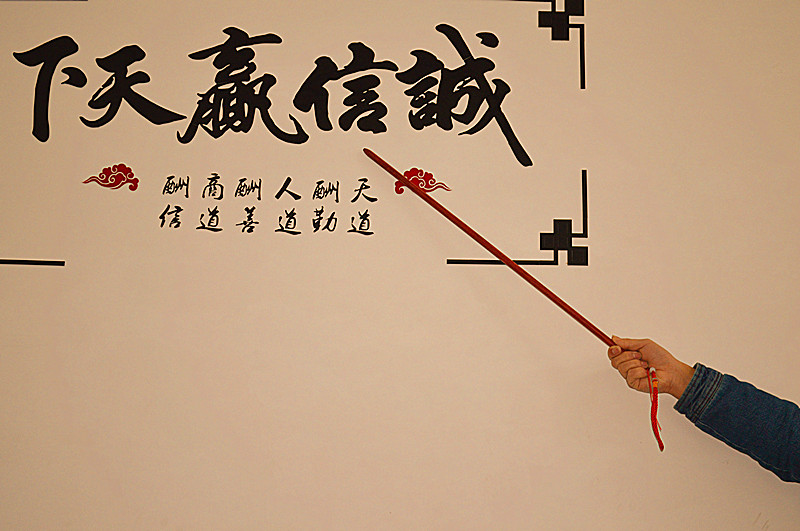 誠信贏天下
天道
酬勤
人道
酬善
商道
酬信